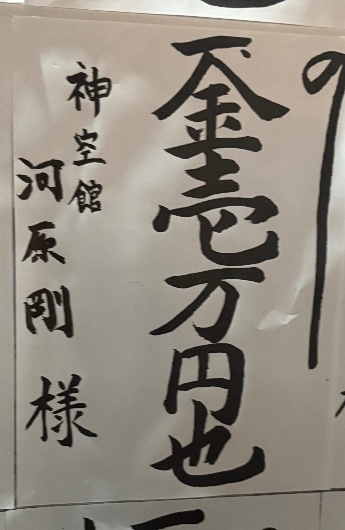 金壱万円也
神空館
河原剛 様